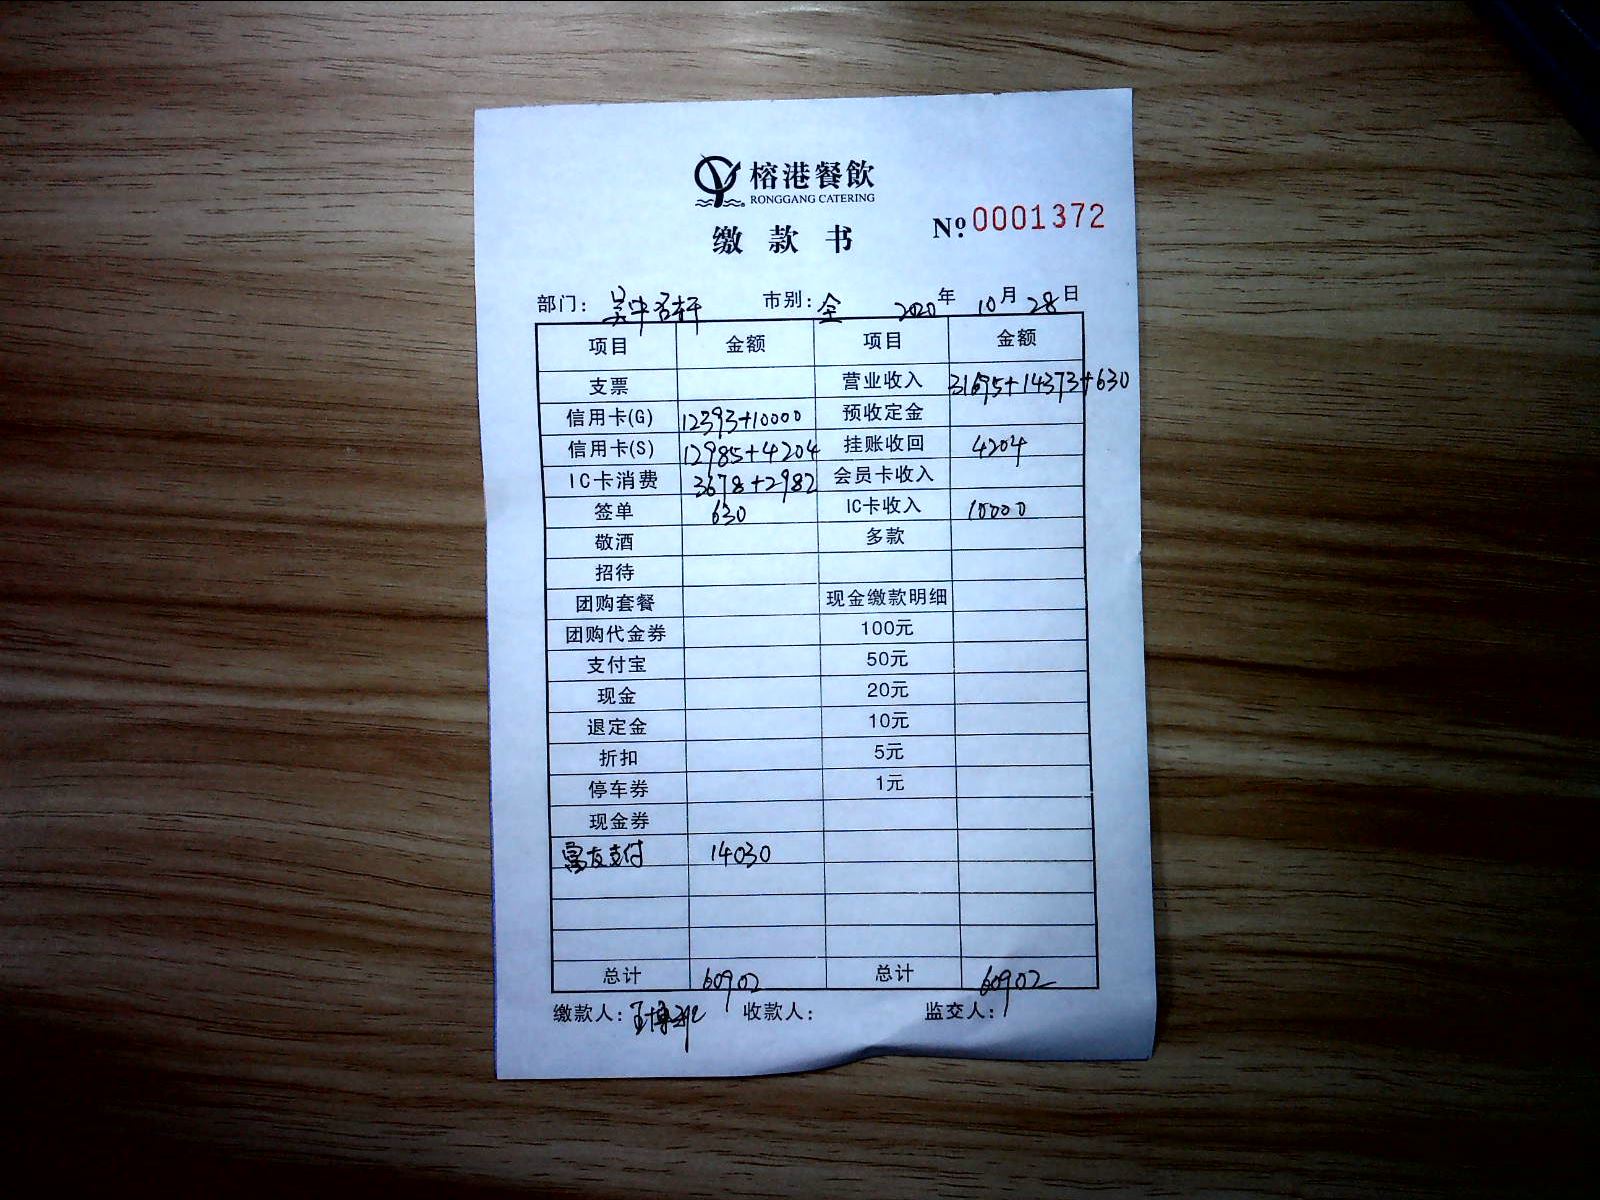 榕港餐飲
RONGGANG CATERING
缴款书
No.0001372
部门：吴中名轩 市别：全 2020年10月28日
项目 金额 项目 金额
支票 营业收入 31695+14373+630
信用卡(G) 12393+10000 预收定金
信用卡(S) 12985+4204 挂账收回 4204
IC卡消费 3678+2982 会员卡收入
签单 630 IC卡收入 10000
敬酒 多款
招待
团购套餐 现金缴款明细
团购代金券 100元
支付宝 50元
现金 20元
退定金 10元
折扣 5元
停车券 1元
现金券
富友支付 14030
总计 60902 总计 60902
缴款人： 收款人： 监交人：